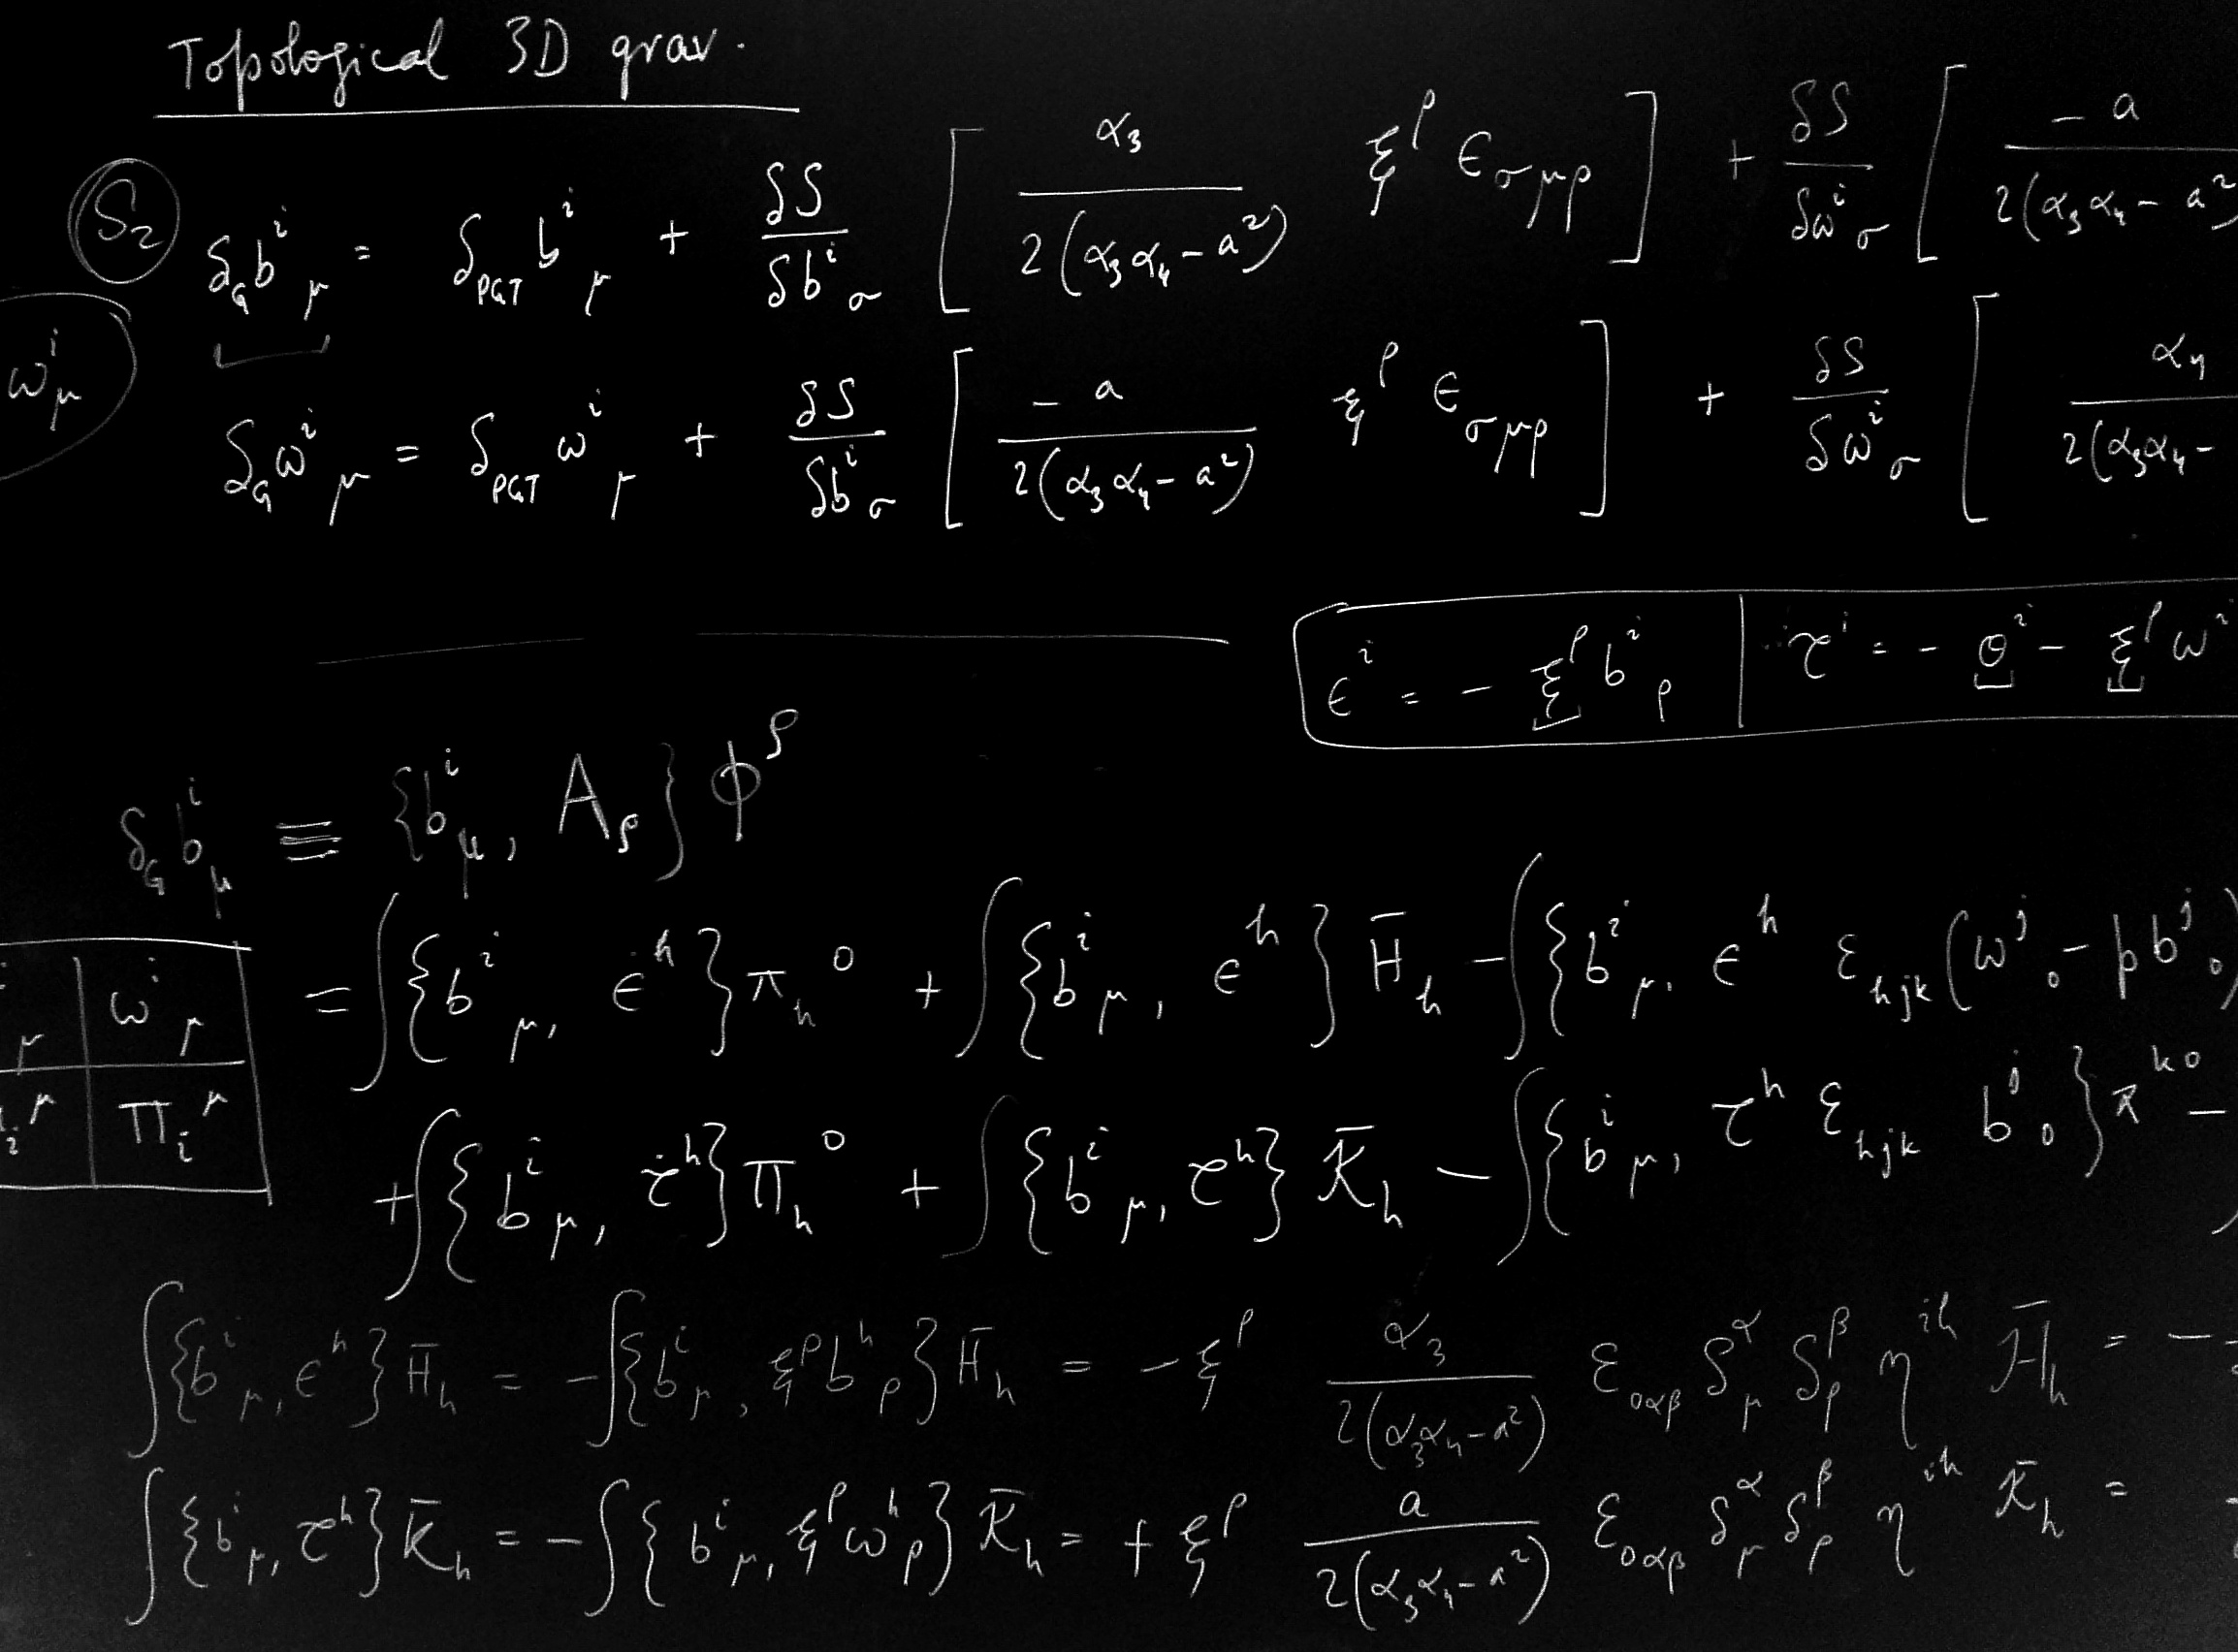 Topological 3D grav.
S₂ δ_G b^i_μ = δ_PGT b^i_μ + δS/δb^i_σ [ α₃/2(α₃α₄ - a²) ξ^ρ ϵ_σμρ ] + δS/δω^i_σ [ -a/2(α₃α₄ - a²)
ω^i_μ
δ_G ω^i_μ = δ_PGT ω^i_μ + δS/δb^i_σ [ -a/2(α₃α₄ - a²) ξ^ρ ϵ_σμρ ] + δS/δω^i_σ [ α₄/2(α₃α₄ -
ϵ^i = - ξ^ρ b^i_ρ | τ^i = - θ^i - ξ^ρ ω^i
δ_G b^i_μ ≡ {b^i_μ, A_ρ} ϕ^ρ
= ∫{b^i_μ, ϵ̇^h} π_h^0 + ∫{b^i_μ, ϵ^h} H̄_h - ∫{b^i_μ, ϵ^h ε_hjk (ω^j_0 - p b^j_0)
μ | ω^i_μ
i^μ | Π_i^μ
+ ∫{b^i_μ, τ̇^h} Π_h^0 + ∫{b^i_μ, τ^h} K̄_h - ∫{b^i_μ, τ^h ε_hjk b^j_0} π^k0 -
∫{b^i_μ, ϵ^h} H̄_h = - ∫{b^i_μ, ξ^ρ b^h_ρ} H̄_h = - ξ^ρ α₃/2(α₃α₄ - a²) ε_0αβ δ^α_μ δ^β_ρ η^ih H̄_h = -
∫{b^i_μ, τ^h} K̄_h = - ∫{b^i_μ, ξ^ρ ω^h_ρ} K̄_h = + ξ^ρ a/2(α₃α₄ - a²) ε_0αβ δ^α_μ δ^β_ρ η^ih K̄_h =